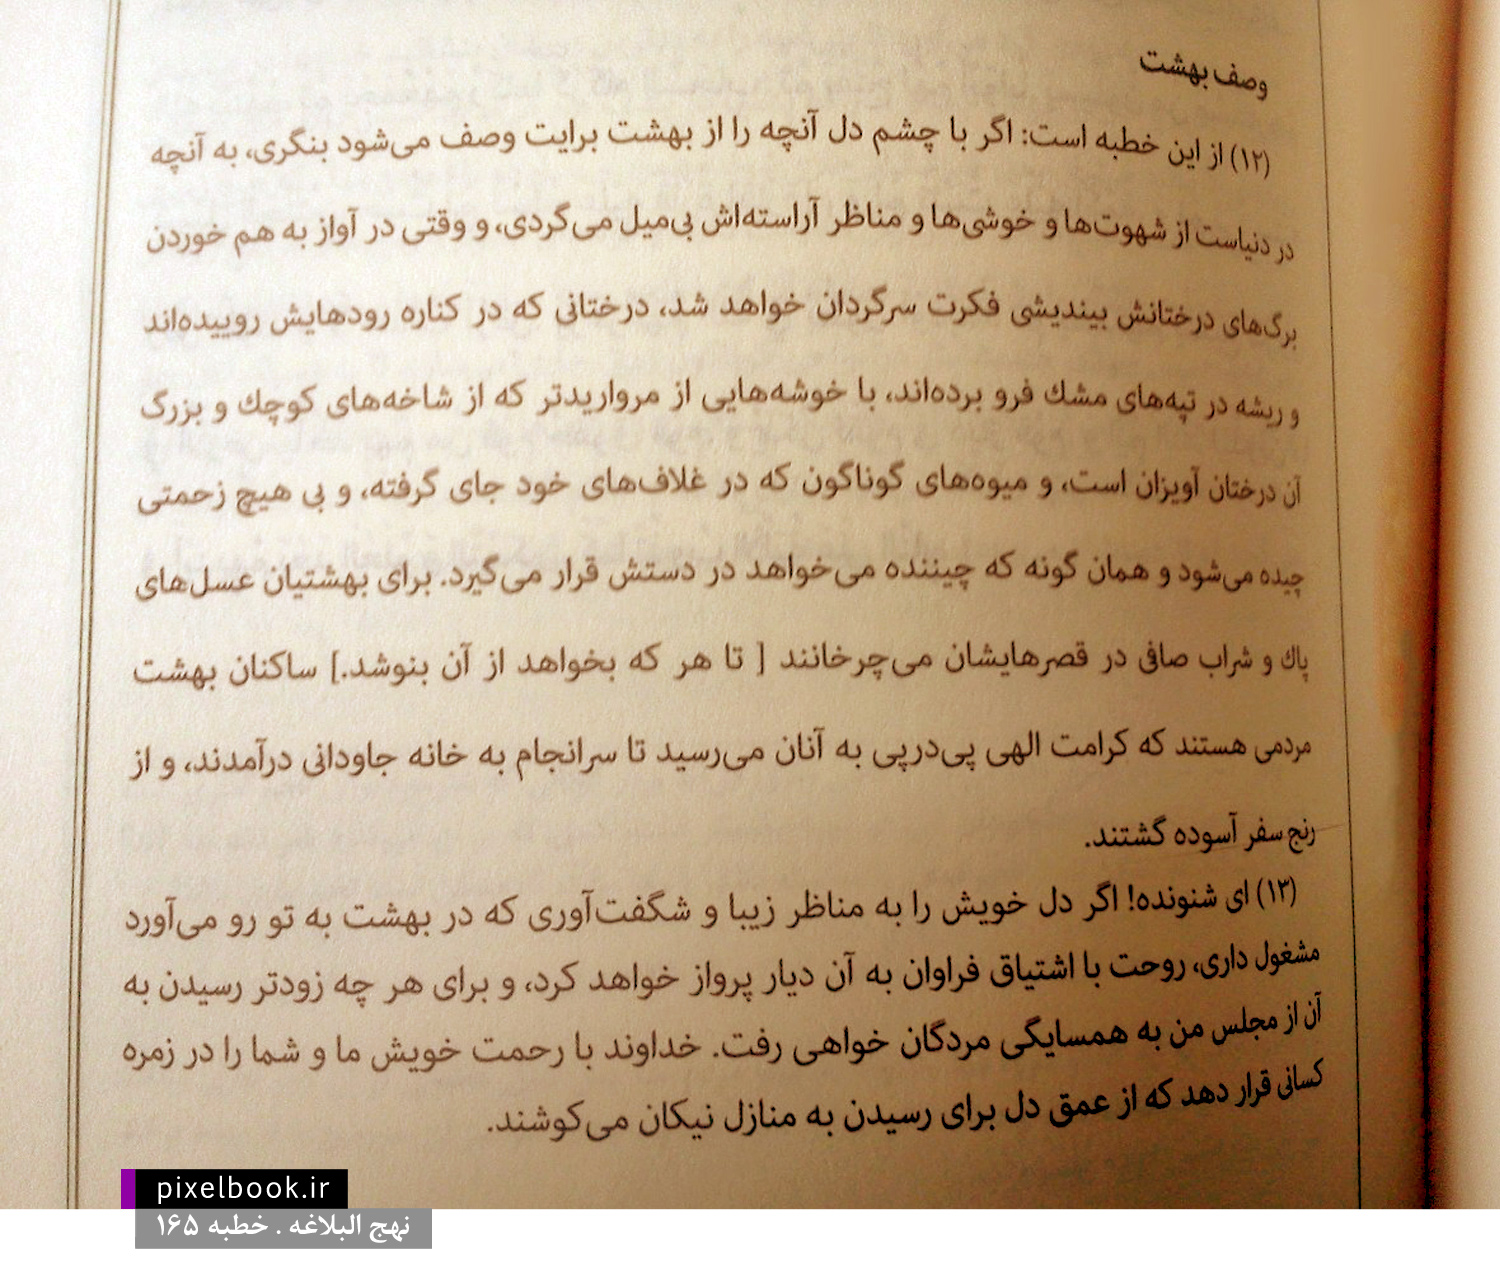 وصف بهشت
(۱۲) از این خطبه است: اگر با چشم دل آنچه را از بهشت برایت وصف می‌شود بنگری، به آنچه
در دنیاست از شهوت‌ها و خوشی‌ها و مناظر آراسته‌اش بی‌میل می‌گردی، و وقتی در آواز به هم خوردن
برگ‌های درختانش بیندیشی فکرت سرگردان خواهد شد، درختانی که در کناره رودهایش روییده‌اند
و ریشه در تپه‌های مشك فرو برده‌اند، با خوشه‌هایی از مرواریدتر که از شاخه‌های کوچك و بزرگ
آن درختان آویزان است، و میوه‌های گوناگون که در غلاف‌های خود جای گرفته، و بی هیچ زحمتی
چیده می‌شود و همان گونه که چیننده می‌خواهد در دستش قرار می‌گیرد. برای بهشتیان عسل‌های
پاك و شراب صافی در قصرهایشان می‌چرخانند [ تا هر که بخواهد از آن بنوشد.] ساکنان بهشت
مردمی هستند که کرامت الهی پی‌درپی به آنان می‌رسید تا سرانجام به خانه جاودانی درآمدند، و از
رنج سفر آسوده گشتند.
(۱۳) ای شنونده! اگر دل خویش را به مناظر زیبا و شگفت‌آوری که در بهشت به تو رو می‌آورد
مشغول داری، روحت با اشتیاق فراوان به آن دیار پرواز خواهد کرد، و برای هر چه زودتر رسیدن به
آن از مجلس من به همسایگی مردگان خواهی رفت. خداوند با رحمت خویش ما و شما را در زمره
کسانی قرار دهد که از عمق دل برای رسیدن به منازل نیکان می‌کوشند.
pixelbook.ir
نهج البلاغه . خطبه ۱۶۵